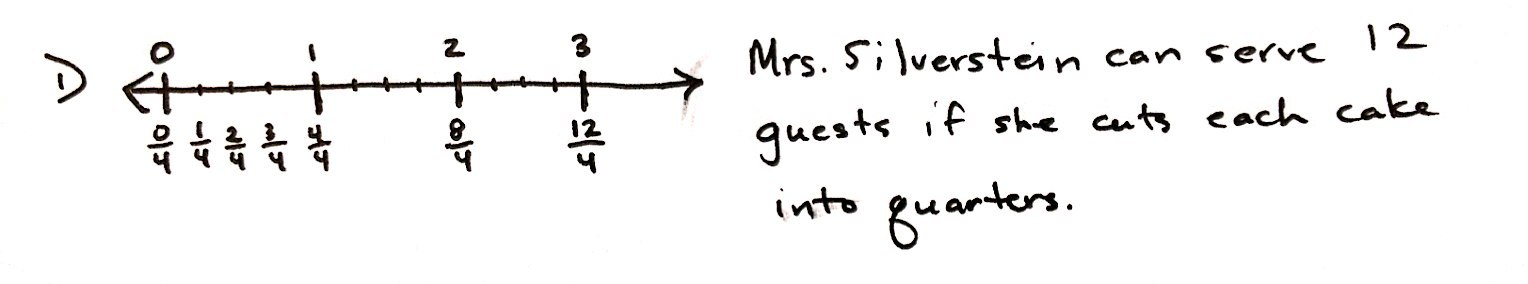 D)
0 1 2 3
0/4 1/4 2/4 3/4 4/4 8/4 12/4
Mrs. Silverstein can serve 12
guests if she cuts each cake
into quarters.